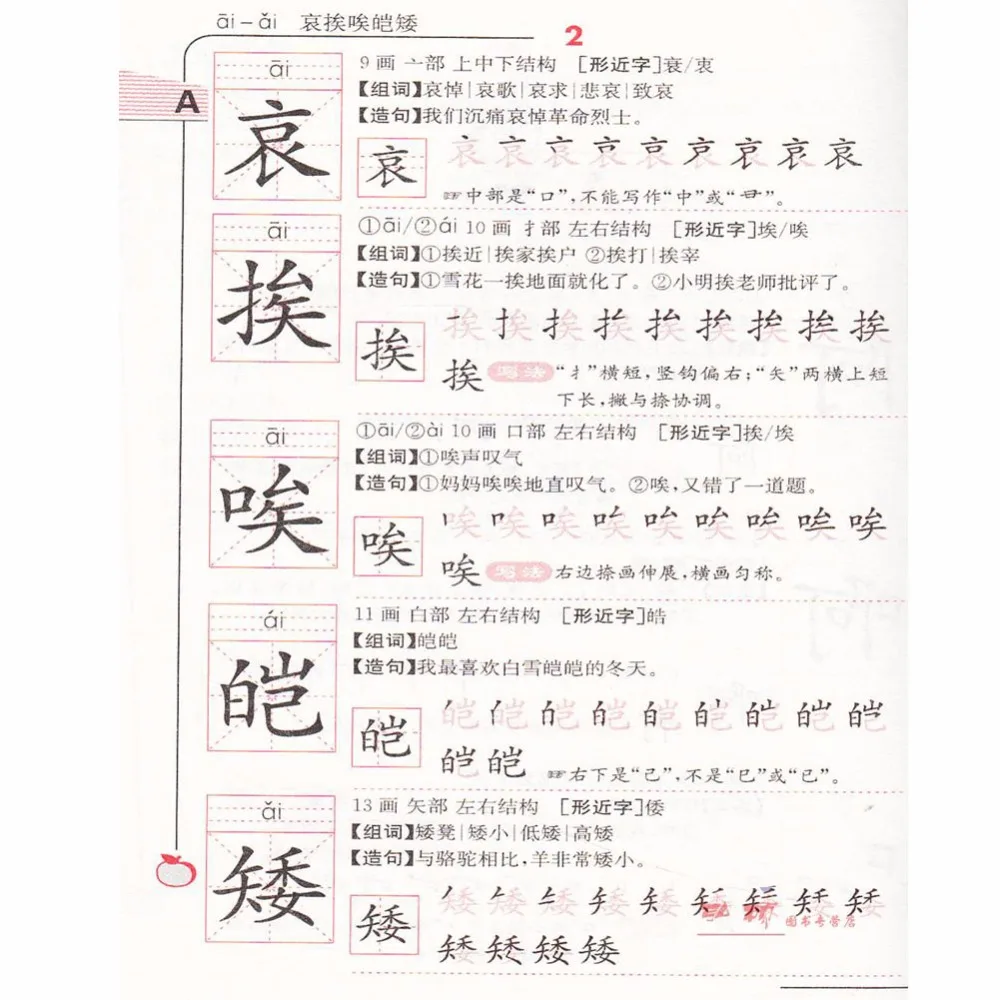 āi－ǎi 哀挨唉皑矮
2
A
āi
哀
9 画 亠部 上中下结构 [形近字]衰/衷
【组词】哀悼|哀歌|哀求|悲哀|致哀
【造句】我们沉痛哀悼革命烈士。
哀 哀 哀 哀 哀 哀 哀 哀 哀 哀
☞中部是“口”，不能写作“中”或“ ”。
āi
挨
①āi/②ái 10 画 扌部 左右结构 [形近字]埃/唉
【组词】①挨近|挨家挨户 ②挨打|挨宰
【造句】①雪花一挨地面就化了。②小明挨老师批评了。
挨 挨 挨 挨 挨 挨 挨 挨 挨 挨
挨 写法 “扌”横短，竖钩偏右；“矢”两横上短
下长，撇与捺协调。
āi
唉
①āi/②ài 10 画 口部 左右结构 [形近字]挨/埃
【组词】①唉声叹气
【造句】①妈妈唉唉地直叹气。②唉，又错了一道题。
唉 唉 唉 唉 唉 唉 唉 唉 唉 唉
唉 写法 右边捺画伸展，横画匀称。
ái
皑
11 画 白部 左右结构 [形近字]皓
【组词】皑皑
【造句】我最喜欢白雪皑皑的冬天。
皑 皑 皑 皑 皑 皑 皑 皑 皑 皑
皑 皑 ☞右下是“己”，不是“已”或“巳”。
ǎi
矮
13 画 矢部 左右结构 [形近字]倭
【组词】矮凳|矮小|低矮|高矮
【造句】与骆驼相比，羊非常矮小。
矮 矮 矮 矮 矮 矮 矮 矮 矮 矮
图书专营店
矮 矮 矮 矮